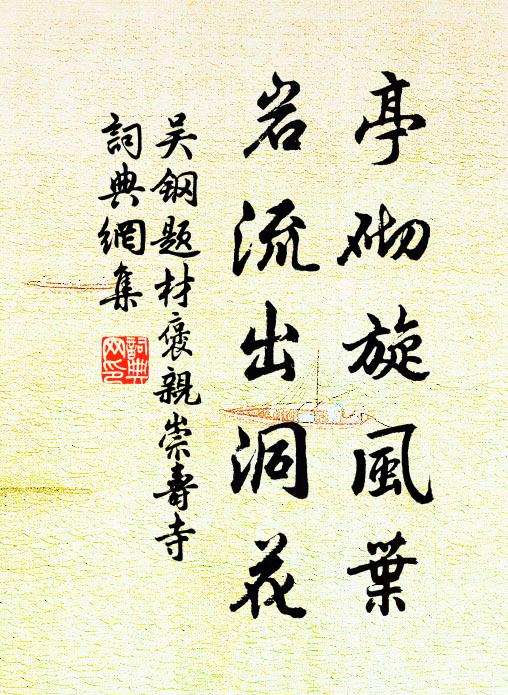 亭砌旋風葉
岩流出洞花
吴鋼題材褒親崇壽寺
詞典網集
詞典
网印